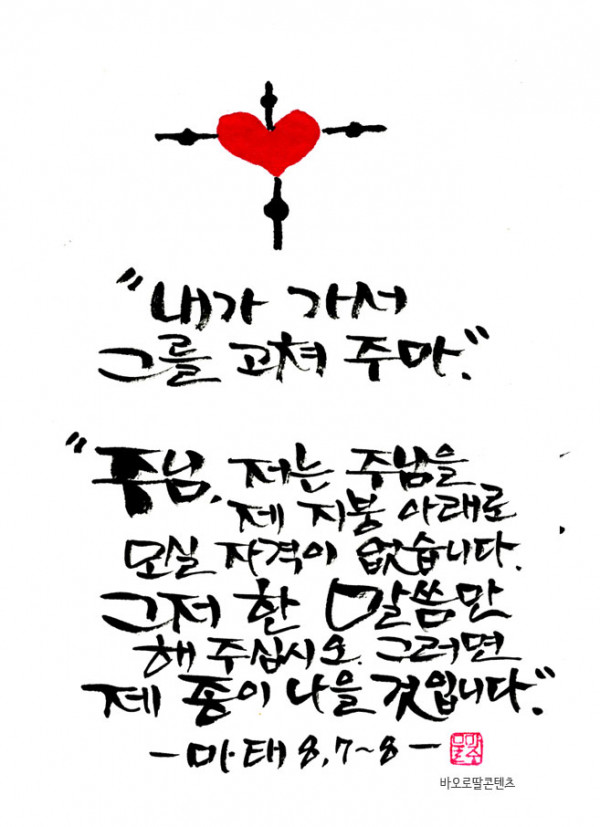 "내가 가서
그를 고쳐 주마."
"주님, 저는 주님을
제 지붕 아래로
모실 자격이 없습니다.
그저 한 말씀만
해 주십시오. 그러면
제 종이 나을 것입니다."
-마태 8,7~8-
바오로딸콘텐츠